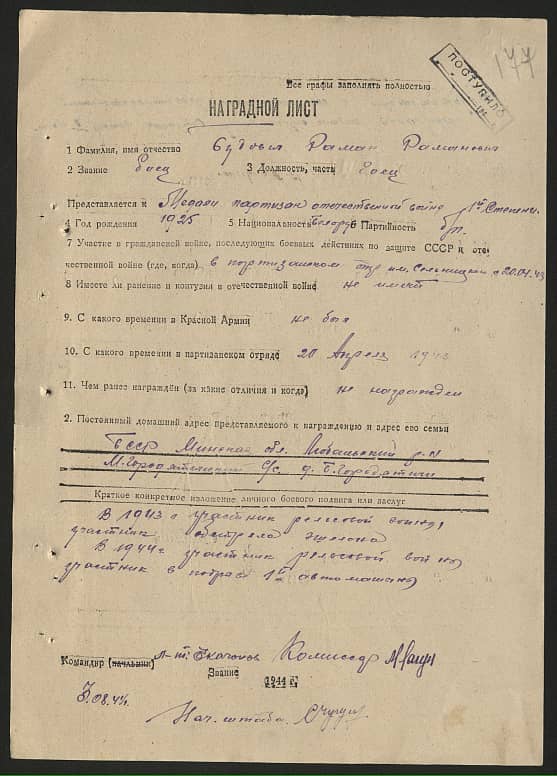 177
ПОСТУПИЛО
Все графы заполнять полностью
НАГРАДНОЙ ЛИСТ
1 Фамилия, имя отчество Будовыл Раман Раманович
2 Звание боец 3 Должность, часть боец
Представляется к Медали партизан отечественной войне 1ой Степени.
4 Год рождения 1925 5 Национальность белорус 6 Партийность б/п.
7 Участие в гражданской войне, последующих боевых действиях по защите СССР и оте-
чественной войне (где, когда) в партизанском отр. им. с 20.04.43
8 Имеете ли ранение и контузия в отечественной войне не имеет
9. С какого времени в Красной Армии не был
10. С какого времени в партизанском отряде 20 Апреля 1943
11. Чем ранее награждён (за какие отличия и когда) не награжден
2. Постоянный домашний адрес представляемого к награждению и адрес его семьи
БССР Минская обл. Любанский р-н
М.Городятичский с/с. д. Б.Городятичи
Краткое конкретное изложение личного боевого подвига или заслуг
В 1943 г участник рельсовой войны,
участник обстрела эшелона
В 1944 г участник рельсовой войны
участник в 1ой автомашины
Командир (начальник) л-т. Комиссар
Звание
1944 г.
3.08.44.
Нач. штаба.